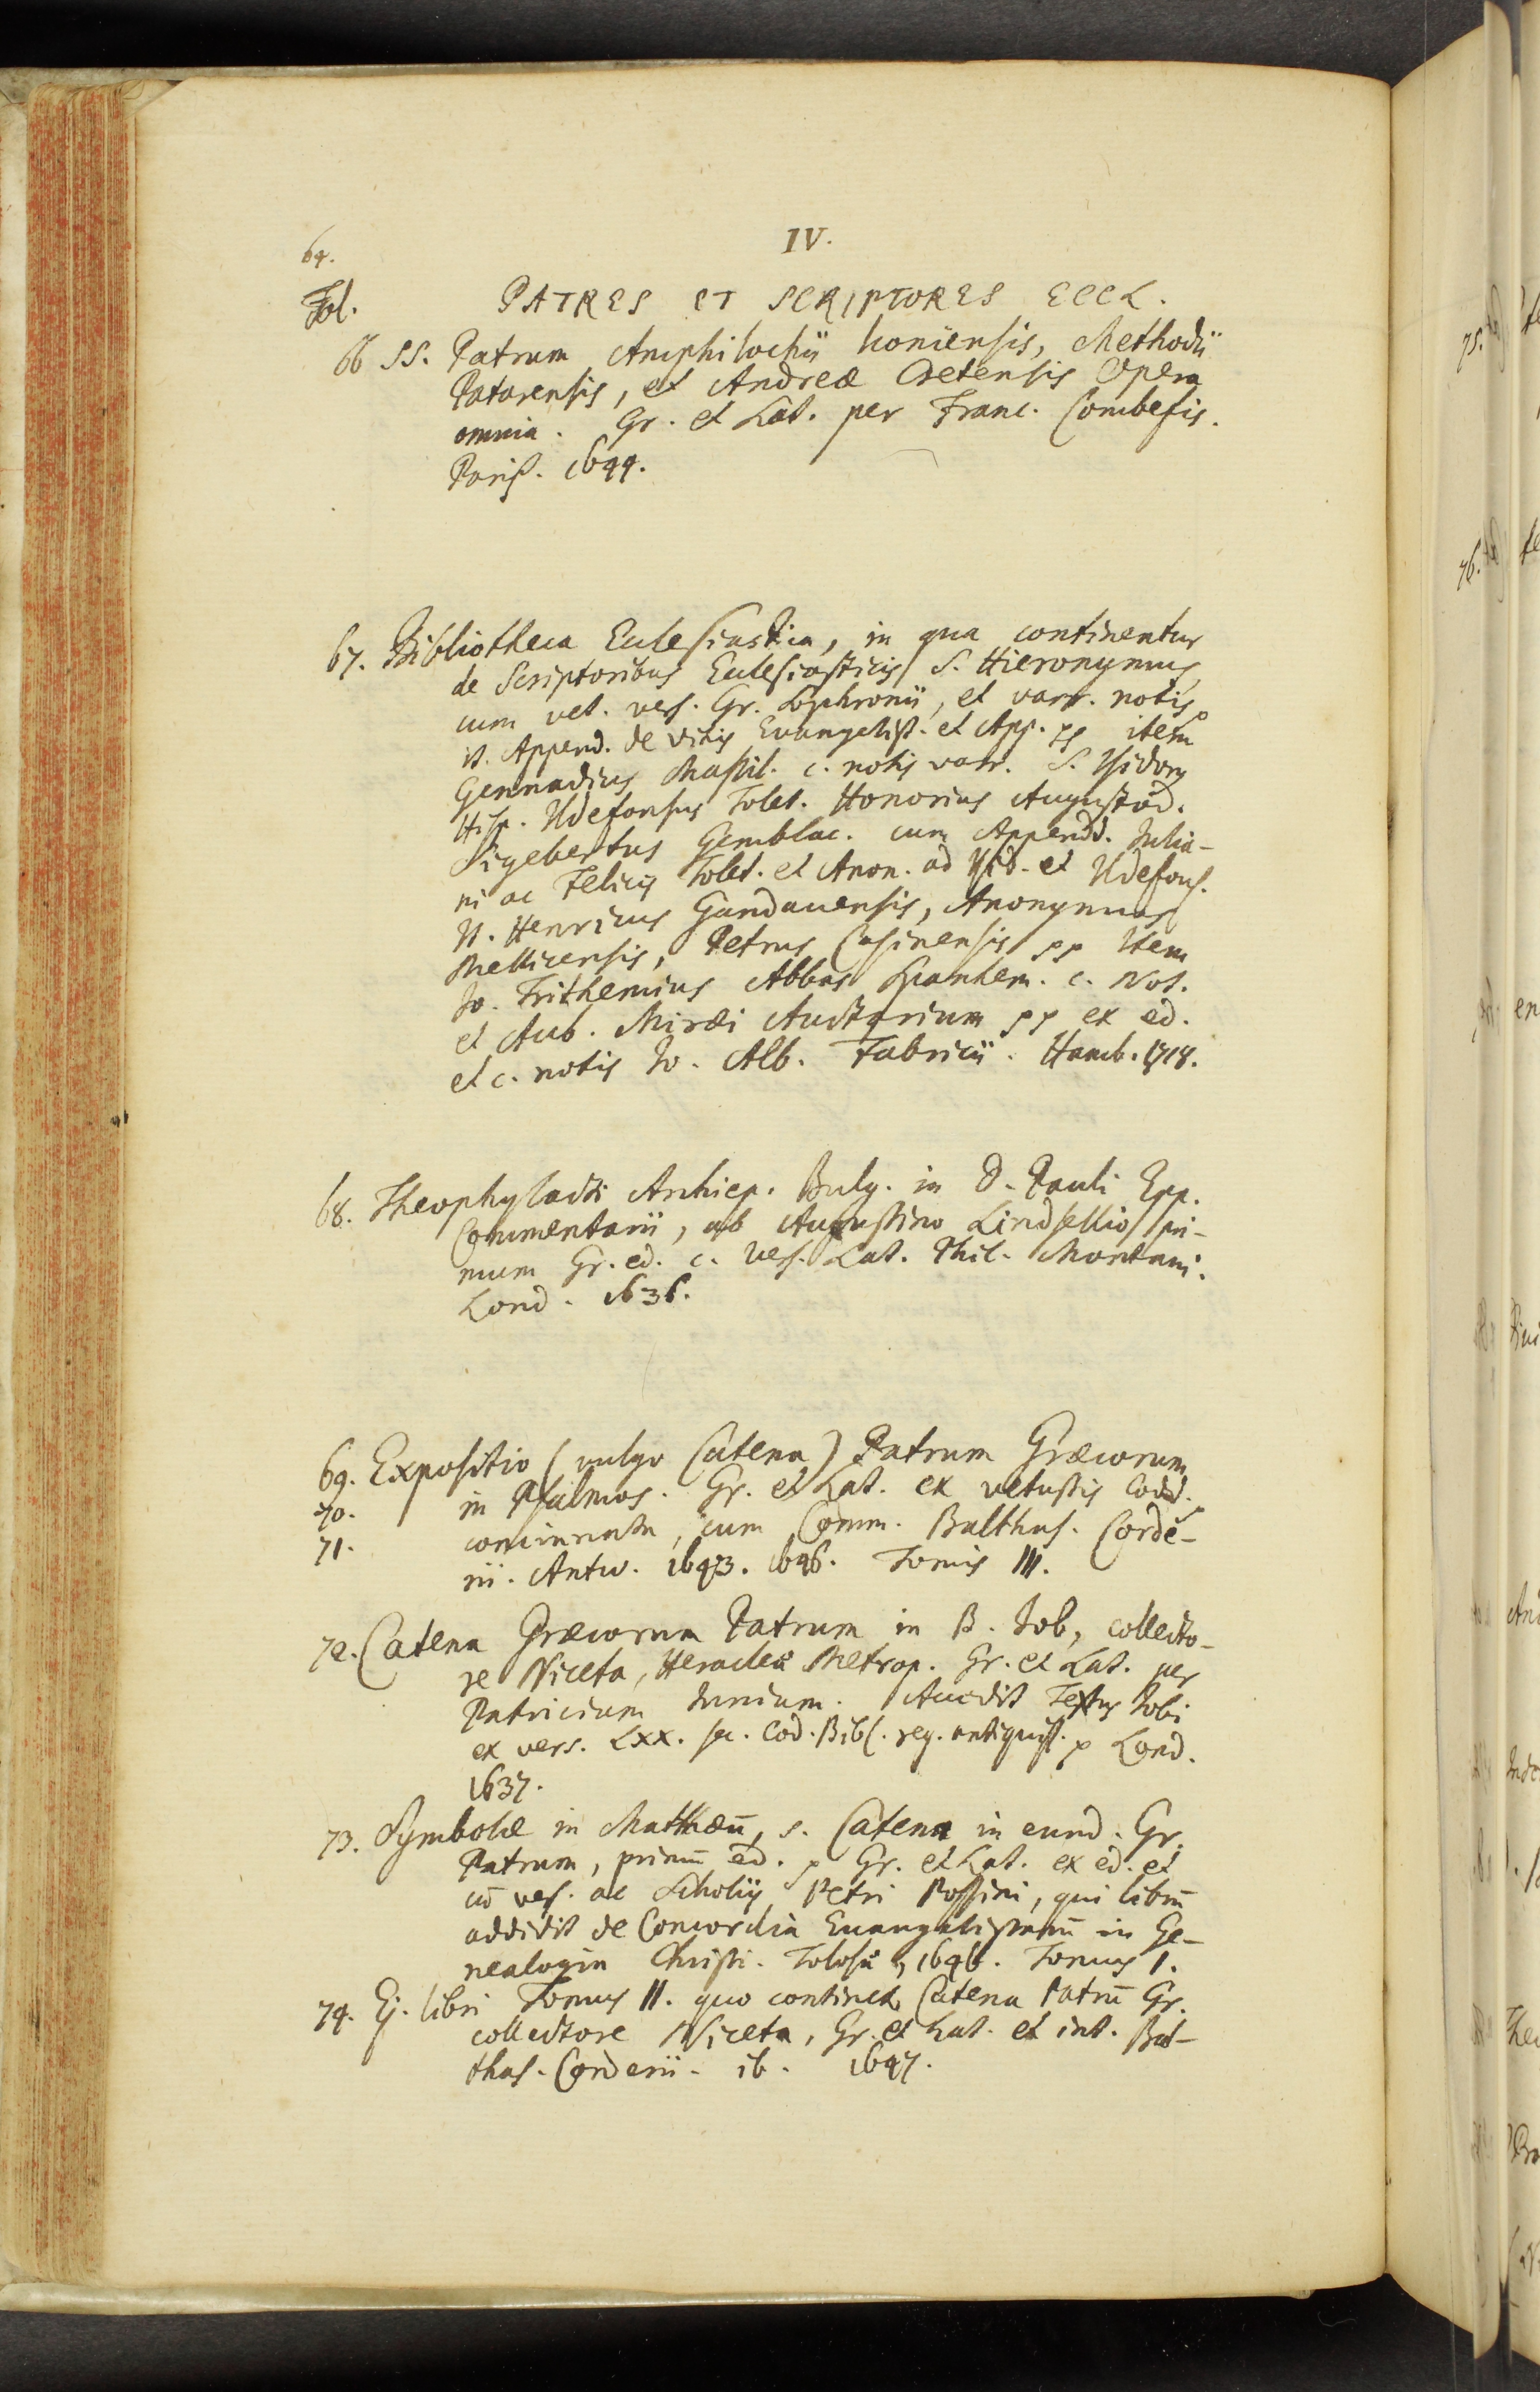 IV.
64.
Fol. PATRES ET SCRIPTORES ECCL.
66 SS. Patrum Amphilochii Iconiensis, Methodii
Patarensis, et Andreæ Cretensis Opera
omnia. Gr. et Lat. per Franc. Combefis.
Paris. 1644.
67. Bibliotheca Ecclesiastica, in qua continentur
de Scriptoribus Ecclesiasticis S. Hieronymus
cum vet. vers. Gr. Sophronii, et varr. notis
it. Append. de vitis Evangelist. et App. pp item
Gennadius Massil. c. notis varr. S. Isidorus
Hisp. Ildefonsus Tolet. Honorius Augustod.
Sigebertus Gemblac. cum Appendd. Julia-
ni ac Felicis Tolet. et Anon. ad Isid. et Ildefons.
It. Henricus Gandauensis, Anonymus
Mellicensis, Petrus Casinensis pp Item
Jo. Trithemius Abbas Spanhem. c. Not.
et Aub. Miræi Auctarium pp ex ed.
et c. notis Jo. Alb. Fabricii. Hamb. 1718.
68. Theophylacti Archiep. Bulg. in D. Pauli Epp.
Commentarii, ab Augustino Lindsellio pri-
mum Gr. ed. c. vers. Lat. Phil. Montani.
Lond. 1636.
69. Expositio (vulgo Catena) Patrum Græcorum
70. in Psalmos. Gr. et Lat. ex vetustis Codd.
71. concinnata, cum Comm. Balthas. Corde-
rii. Antw. 1643. 1646. Tomis III.
72. Catena Græcorum Patrum in B. Job, collecto-
re Niceta, Heracleæ Metrop. Gr. et Lat. per
Patricium Junium. Accedit Textus Jobi
ex vers. LXX. sec. Cod. Bibl. reg. antiquiss. p Lond.
1637.
73. Symbolæ in Matthæū, s. Catena in eund. Gr.
Patrum, primū ed. p Gr. et Lat. ex ed. et
cū vers. ac Scholiis Petri Possini, qui librū
addidit de Concordia Evangelistarū in Ge-
nealogia Christi. Tolosæ, 1646. Tomus I.
74. Ej. libri Tomus II. quo continet Catena Patrū Gr.
collectore Niceta, Gr. et Lat. et int. Bal-
thas. Corderii. ib. 1647.